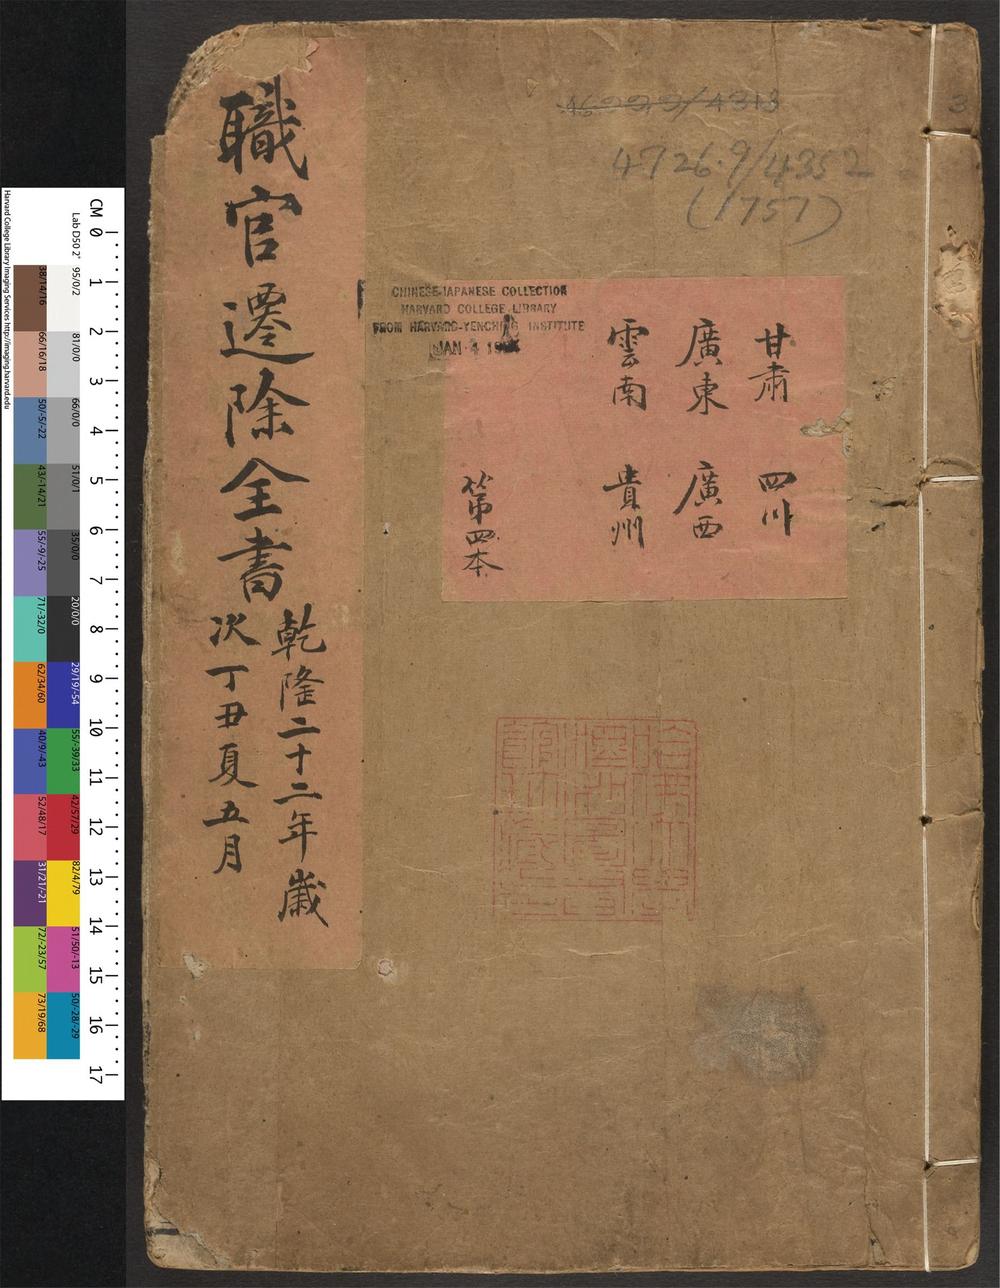 職官遷除全書
乾隆二十二年歲
次丁丑夏五月
46292/4313
4726.9/4352
(1757)
3
CHINESE-JAPANESE COLLECTION
HARVARD COLLEGE LIBRARY
FROM HARVARD-YENCHING INSTITUTE
JAN 4
甘肅 四川
廣東 廣西
雲南 貴州
第四本
哈佛大學
漢和圖書
館珍藏印
Harvard College Library Imaging Services http://imaging.harvard.edu
Lab D50 2°
CM 0 1 2 3 4 5 6 7 8 9 10 11 12 13 14 15 16 17
95/0/2 81/0/0 66/0/0 51/0/1 35/0/0 20/0/0 29/19/-54 55/-39/33 42/57/29 82/4/79 51/50/-13 50/-28/-29
38/14/16 66/16/18 50/-5/-22 43/-14/21 55/-9/-25 71/-32/0 62/34/60 40/9/-43 52/48/17 31/21/-21 72/-23/57 73/19/68